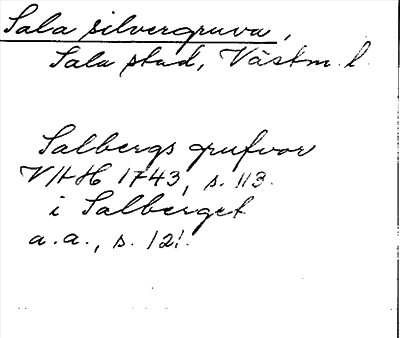 Sala silvergruva,
Sala stad, Västm. l.
Salbergs grufvor
VHH 1743, s. 113.
i Salberget
a.a., s. 121.